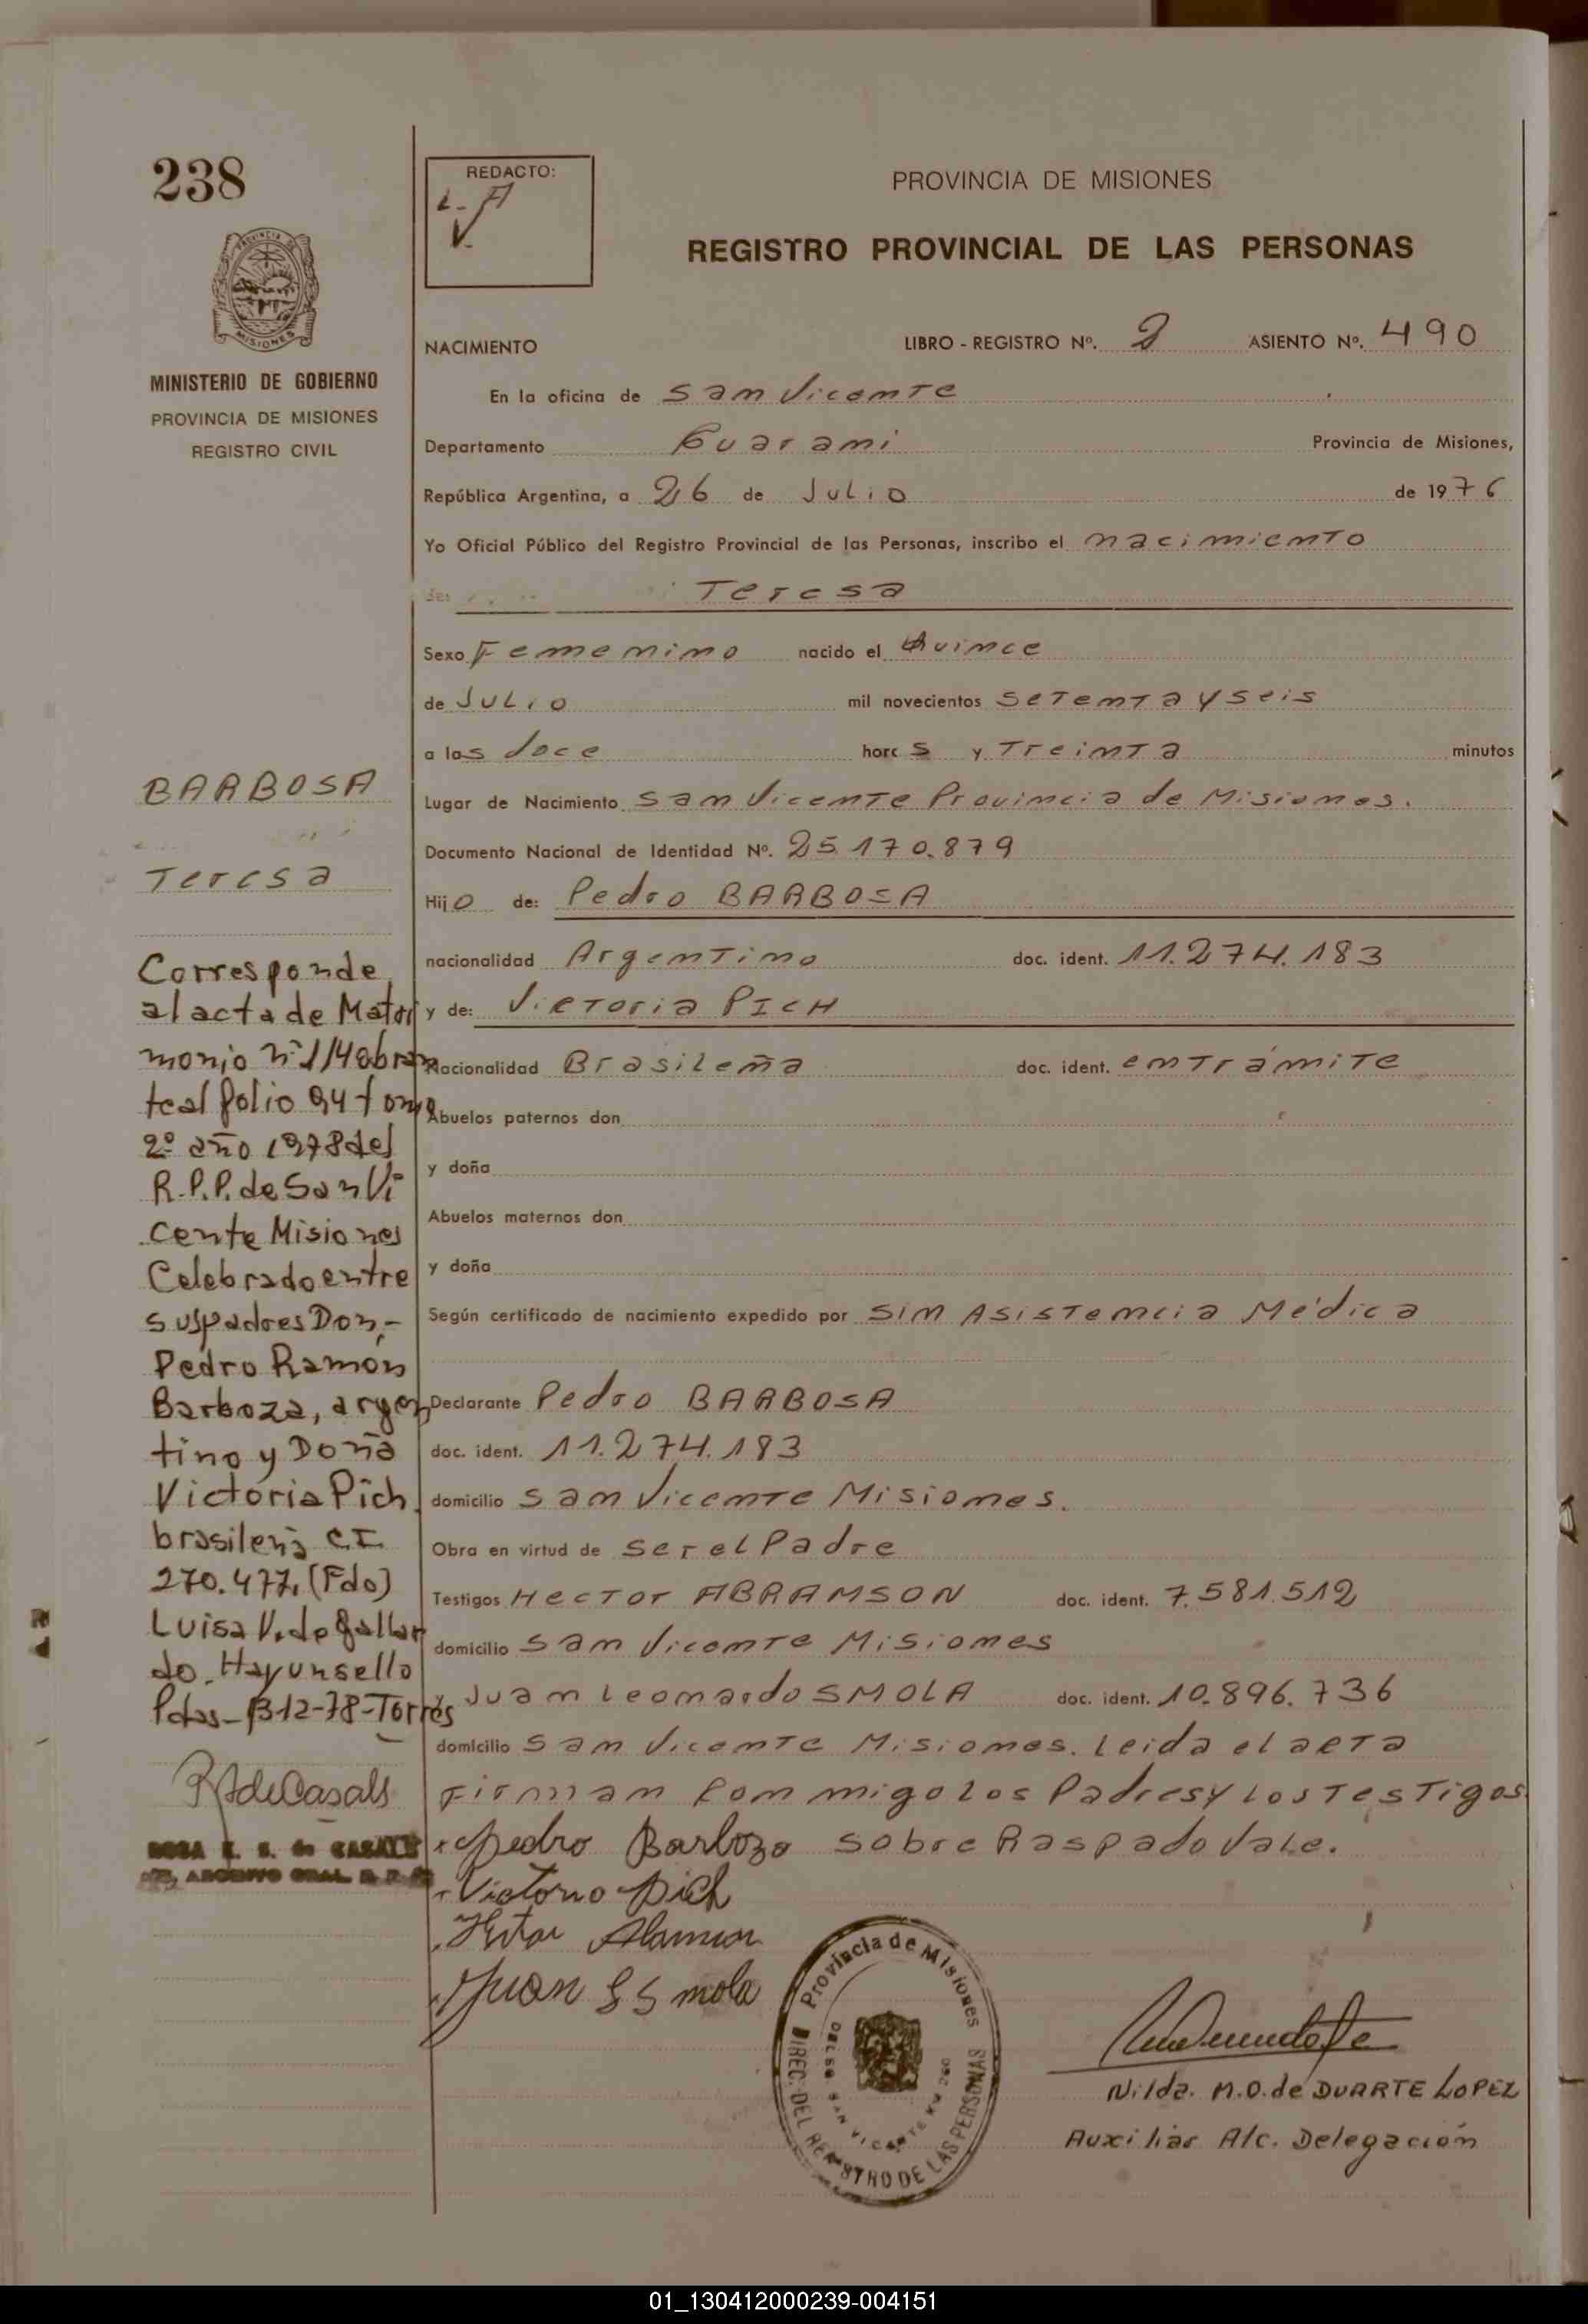 238
PROVINCIA DE
MISIONES
MINISTERIO DE GOBIERNO
PROVINCIA DE MISIONES
REGISTRO CIVIL
BARBOSA
Teresa
Corresponde
al acta de Matri
monio nº 114 obran
te al folio 94 tomo
2º año 1978 del
R.P.P. de San Vi
cente Misiones
Celebrado entre
sus padres Don,-
Pedro Ramón
Barboza, argen
tino y Doña
Victoria Pich
brasileña C.I.
270.477, (Fdo)
Luisa V. de Gallar
do. Hay un sello
Pdas-13-12-78-Torres
RAdeCasals
ROSA E. S. de CASALS
ARCHIVO GRAL. R. P.
REDACTO:
PROVINCIA DE MISIONES
REGISTRO PROVINCIAL DE LAS PERSONAS
NACIMIENTO LIBRO - REGISTRO Nº. 2 ASIENTO Nº. 490
En la oficina de San Vicente
Departamento Guarani Provincia de Misiones,
República Argentina, a 26 de Julio de 1976
Yo Oficial Público del Registro Provincial de las Personas, inscribo el nacimiento
de: Teresa
Sexo Femenino nacido el Quince
de Julio mil novecientos setenta y seis
a las doce horas y Treinta minutos
Lugar de Nacimiento San Vicente Provincia de Misiones.
Documento Nacional de Identidad Nº. 25.170.879
Hijo de: Pedro BARBOSA
nacionalidad Argentino doc. ident. 11.274.183
y de: Victoria PICH
Nacionalidad Brasileña doc. ident. en trámite
Abuelos paternos don
y doña
Abuelos maternos don
y doña
Según certificado de nacimiento expedido por sin Asistencia Médica
Declarante Pedro BARBOSA
doc. ident. 11.274.183
domicilio San Vicente Misiones.
Obra en virtud de ser el Padre
Testigos Hector ABRAMSON doc. ident. 7.581.512
domicilio San Vicente Misiones
Juan Leonardo SMOLA doc. ident. 10.896.736
domicilio San Vicente Misiones. Leida el acta
Firman conmigo los Padres y los Testigos.
Pedro Barboza sobre Raspado Vale.
Victorio Pich
Juan L Smola
Provincia de Misiones
DIREC. DEL REGISTRO DE LAS PERSONAS
DELEG. SAN VICENTE KM 260
Nilda. M.O. de DUARTE LOPEZ
Auxiliar A/c. Delegación
01_130412000239-004151